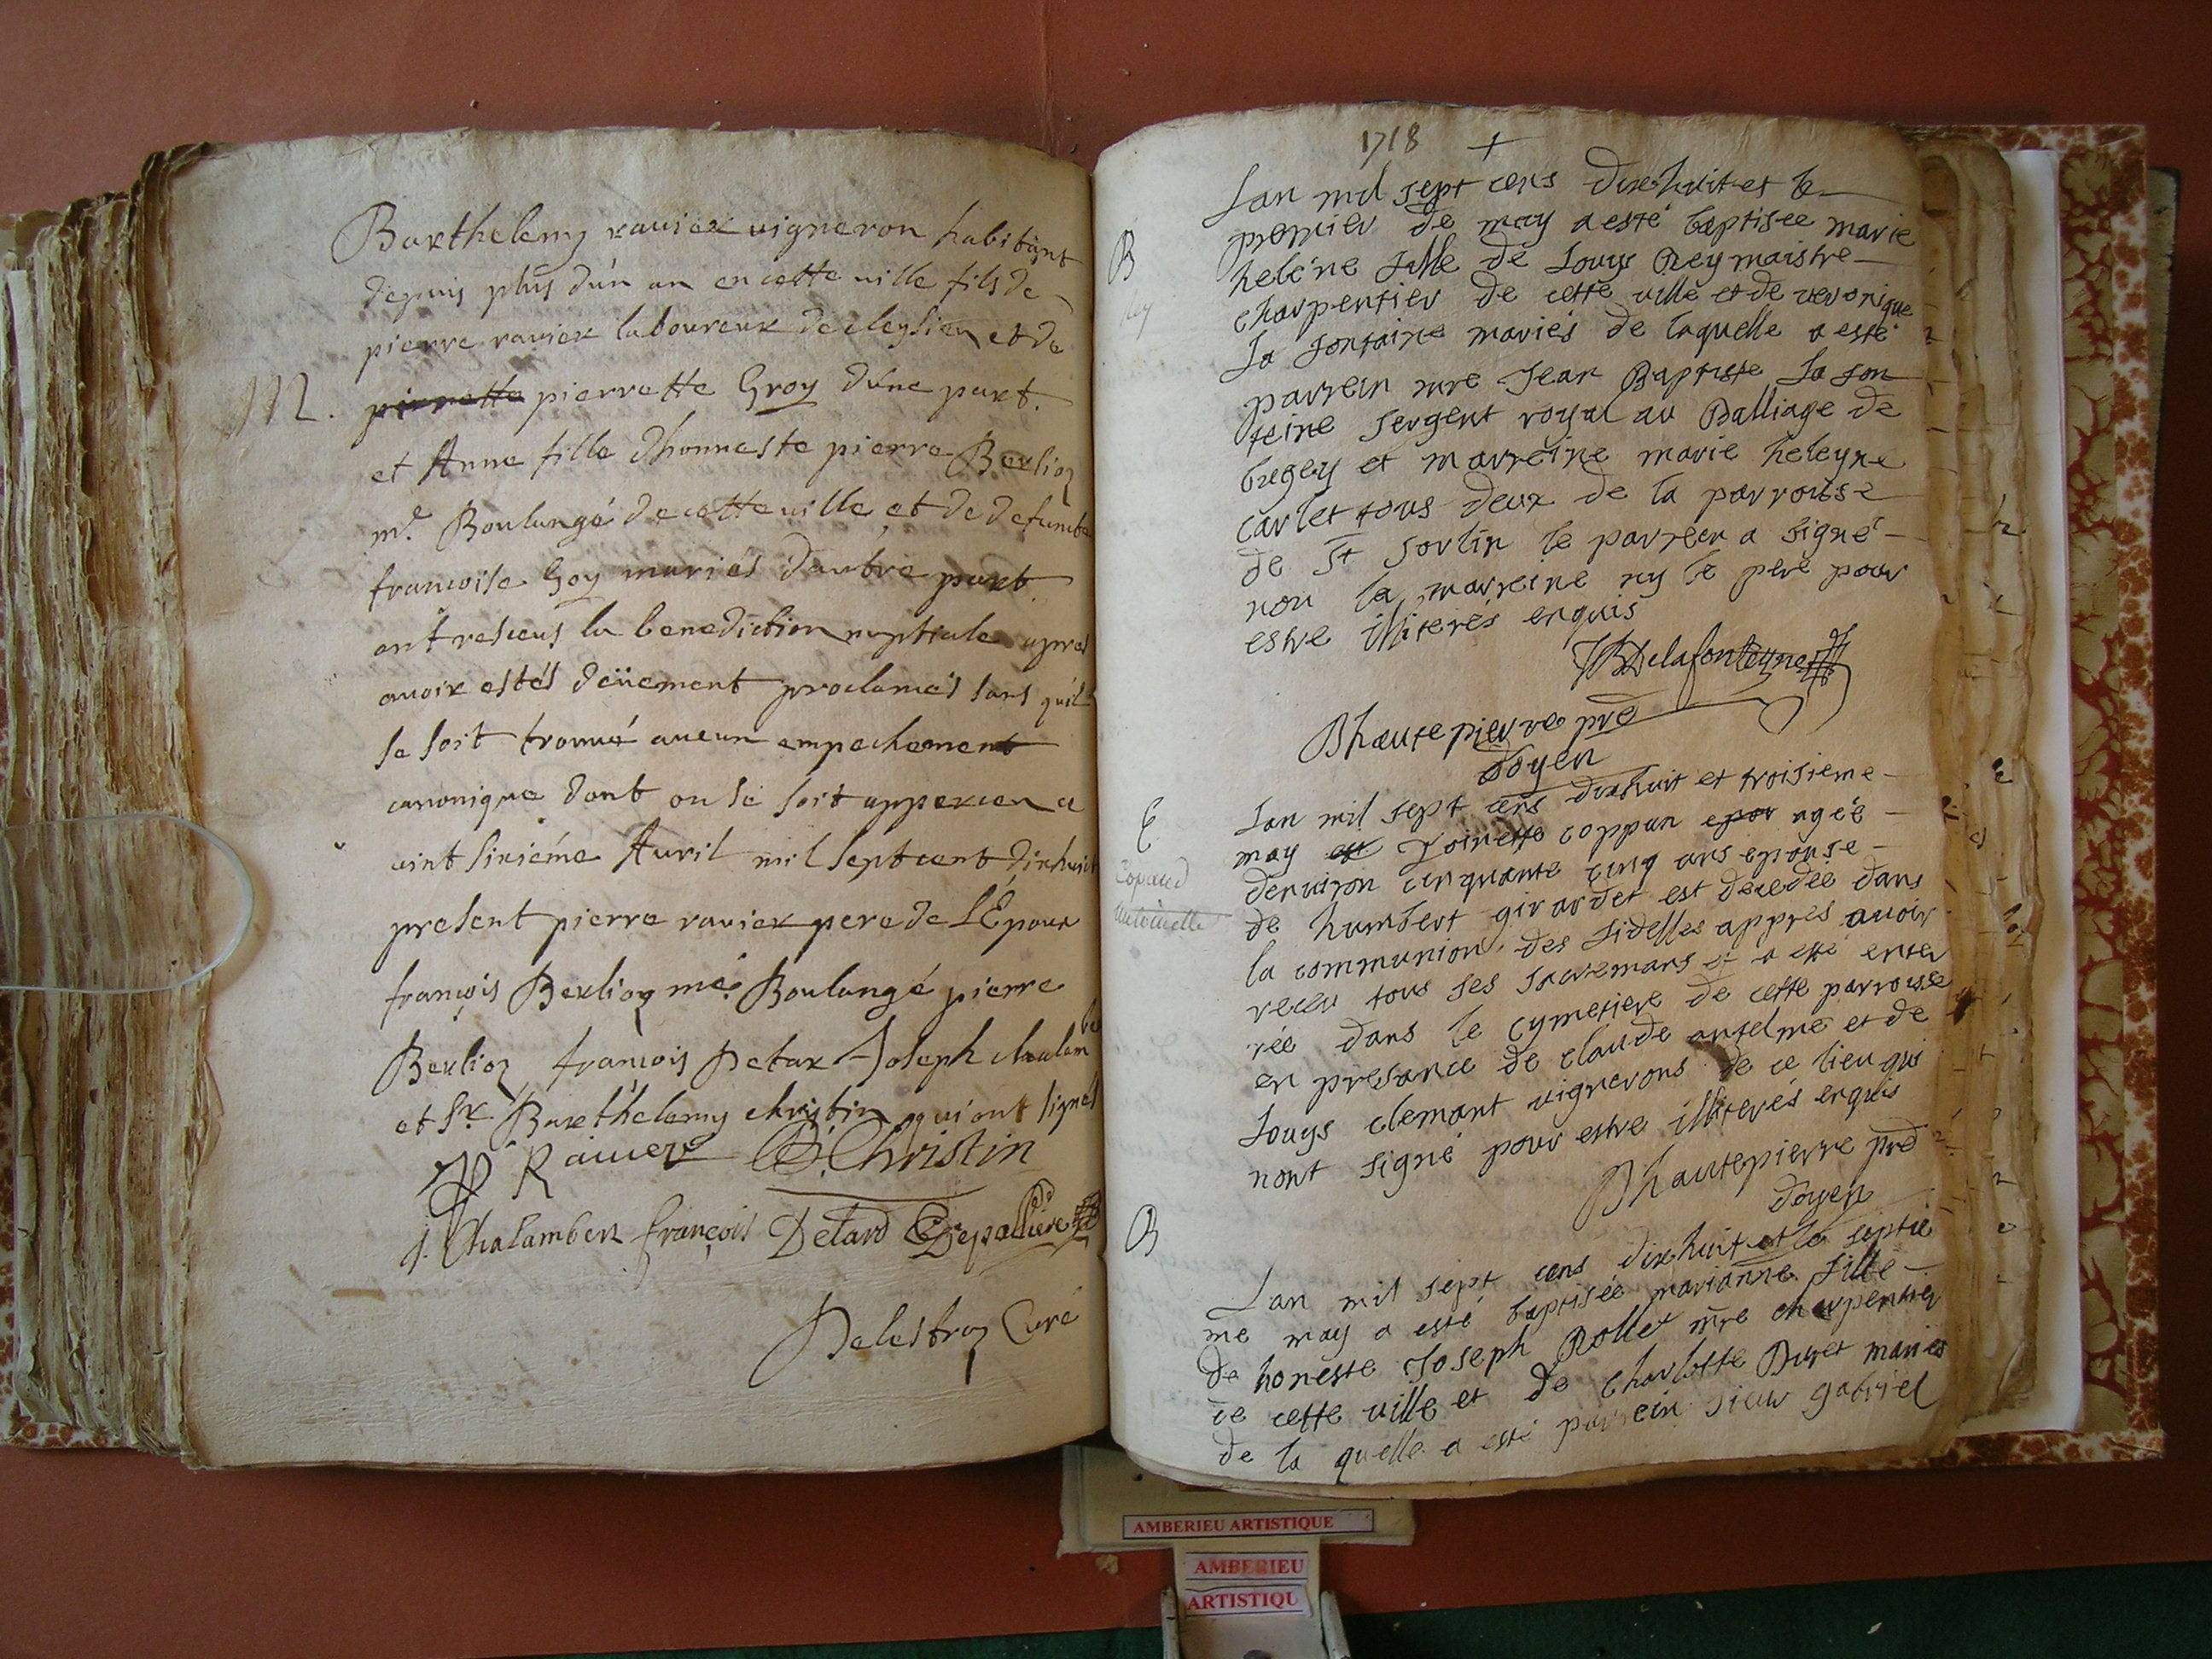 Barthelemy ravier vigneron habitant
depuis plus d'un an en cette ville fils de
pierre ravier laboureur de cleysieu et de
M. pierrette pierrette Groy d'une part.
et Anne fille d'honneste pierre Berlioz
me. Boulangé de cette ville et de defunte
francoise Goy mariés d'autre part
ont resceus la benediction nuptiale apres
avoir estés deüement proclamés sans qu'il
se soit trouvé aucun empechement
canonique dont on se soit apperceu ce
vint sixiéme Avril mil sept cent dixhuit
present pierre ravier pere de l'Epoux
françois Berlioz me. Boulangé pierre
Berlioz françois Detar Joseph chalam
ber
et Sr. Barthelemy christin qui ont signés
P Ravier B. Christin
J. Chalamber françois Detard Depalliere
Delestraz Curé
1718
Lan mil sept cens dixhuit et le
B premier de may a esté baptisee marie
heléne fille de Louys Rey maistre
rey
charpentier de cette ville et de veronique
La fontaine mariés de laquelle a esté
parrein mre Jean Baptiste La fon
teine sergent royal au Balliage de
bugey et marreine marie heleyne
Carlet tous deux de la parroisse
de St Sorlin le parrein a signé
non la marreine ny le pere pour
estre illiterés enquis
JBDelafonteyne
Dhautepierre pre
doyen
E Lan mil sept cens dixhuit et troisieme
may est Toinette coppan epou agée
Copaud
denviron cinquante cinq ans epouse
Antoinette
de humbert girardet est decedée dans
la communion des fidelles appres avoir
receu tous ses sacremans et a esté enter
rée dans le cymetiere de cette parroisse
en presance de claude antelme et de
Louys clemant vignerons de ce lieu qui
nont signé pour estre illiterés enquis
Dhautepierre pre
doyen
B
Lan mil sept cens dixhuit et le septie
me may a esté baptisée marianne fille
de honeste Joseph Rollet mre charpentier
de cette ville et de Charlotte Buret mariés
de la quelle a esté parrein sieur gabriel
AMBERIEU ARTISTIQUE
AMBERIEU
ARTISTIQU